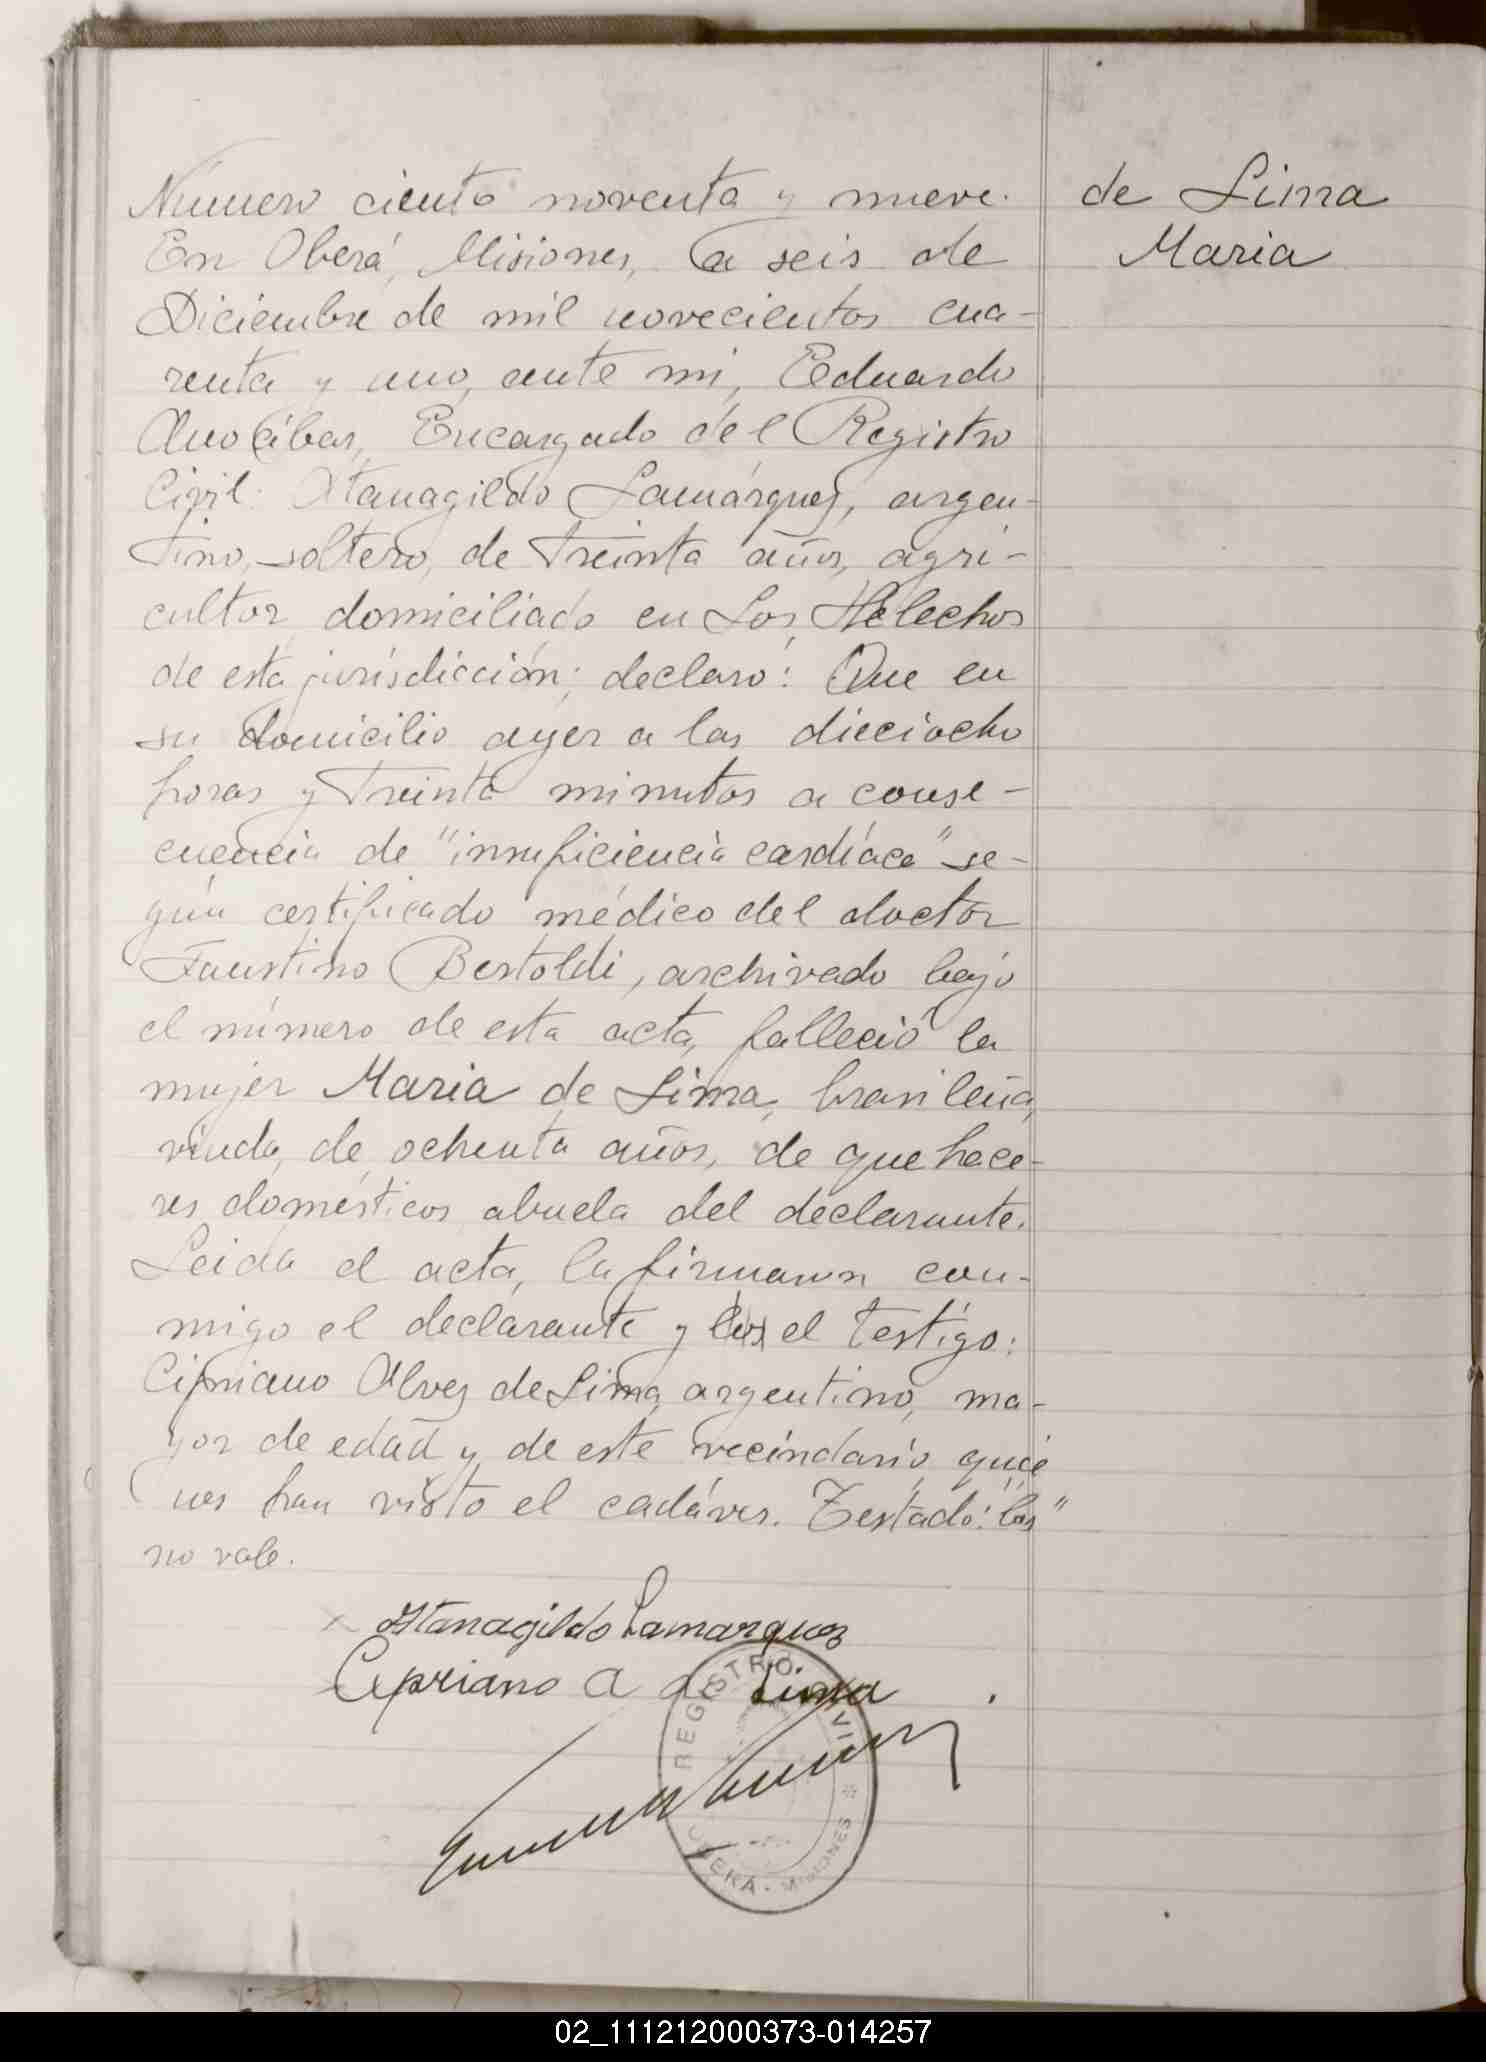 Número ciento noventa y nueve.
de Lima
Maria
En Oberá, Misiones, a seis de
Diciembre de mil novecientos cua-
renta y uno, ante mi, Eduardo
Encargado del Registro
Civil: Atanagildo Lamárquez, argen-
tino, soltero, de treinta años, agri-
cultor domiciliado en Los Helechos
de esta jurisdicción; declaró: Que en
su domicilio ayer a las dieciocho
horas y treinta minutos a conse-
cuencia de "insuficiencia cardíaca" se-
gún certificado médico del doctor
Faustino Bertoldi, archivado bajo
el número de esta acta, falleció la
mujer Maria de Lima, brasileña,
viuda, de ochenta años, de que hace-
res domésticos abuela del declarante.
Leida el acta, la firmaron con-
migo el declarante y los el testigo:
Cipriano Alvez de Lima, argentino, ma-
yor de edad y de este vecindario quié
nes han visto el cadáver. Testado: "los"
no vale.
Atanagildo Lamarquez
Cipriano A de Lima
REGISTRO CIVIL
OBERÁ - MISIONES
02_111212000373-014257